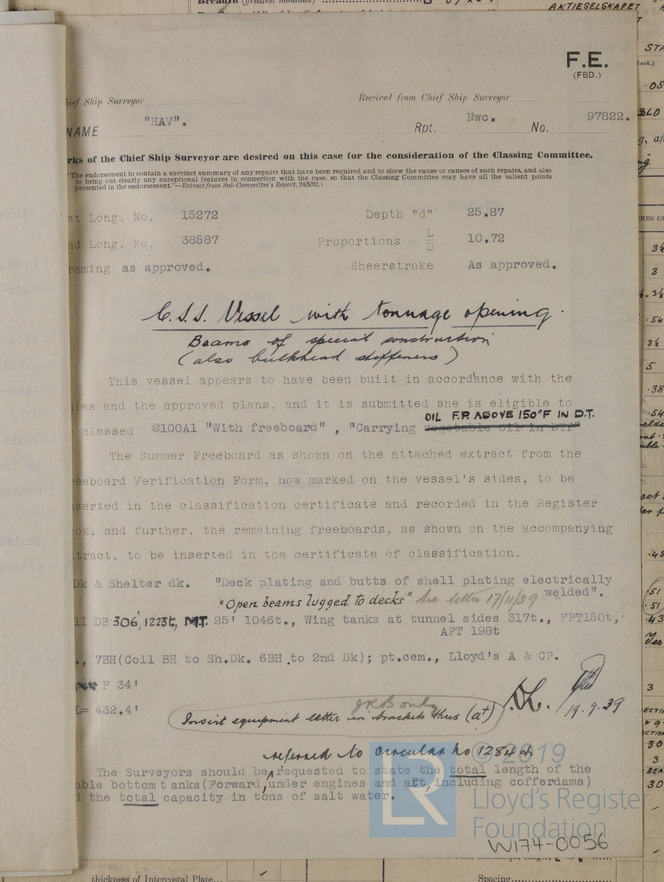 AKTIESELSKAPET
F.E.
(FBD.)
ief Ship Surveyor
Received from Chief Ship Surveyor
NAME "HAV".
Rpt. Nwc. No. 97822.
rks of the Chief Ship Surveyor are desired on this case for the consideration of the Classing Committee.
The endorsement to contain a succinct summary of any repairs that have been required and to show the cause or causes of such repairs, and also
to bring out clearly any exceptional features in connection with the case, so that the Classing Committee may have all the salient points
presented in the endorsement."—Extract from Sub-Committee's Report, 24/5/92.
st Long. No. 15272 Depth "d" 25.87
nd Long. No. 38587 Proportions = L/D 10.72
raming as approved. Sheerstrake As approved.
C.S.S. Vessel with tonnage opening.
Beams of special construction
(also bulkhead stiffeners)
This vessel appears to have been built in accordance with the
les and the approved plans, and it is submitted she is eligible to
OIL F.P. ABOVE 150°F IN D.T.
classed 100A1 "With freeboard", "Carrying vegetable oil in DT?"
The Summer Freeboard as shown on the attached extract from the
eeboard Verification Form, now marked on the vessel's sides, to be
serted in the classification certificate and recorded in the Register
ok, and further, the remaining freeboards, as shown on the accompanying
tract, to be inserted in the certificate of classification.
Dk & Shelter dk. "Deck plating and butts of shell plating electrically
welded".
"Open beams lugged to decks" See letter 17/11/39
ll DB 306', 1223t, MT. 25' 1046t., Wing tanks at tunnel sides 317t., FPT150t,
APT 198t
., 7BH(Coll BH to Sh.Dk. 6BH to 2nd Dk); pt.cem., Lloyd's A & CP.
F 34'
L= 432.4'
JRB only
Insert equipment letter in brackets thus (at)
19.9.39
referred to circular no 1284 at
The Surveyors should be requested to state the total length of the
ble bottom tanks(Forward, under engines and aft, including cofferdams)
d the total capacity in tons of salt water.
© 2019
LR
Lloyd's Register
Foundation
W174-0056
thickness of Intercostal Plate
Spacing